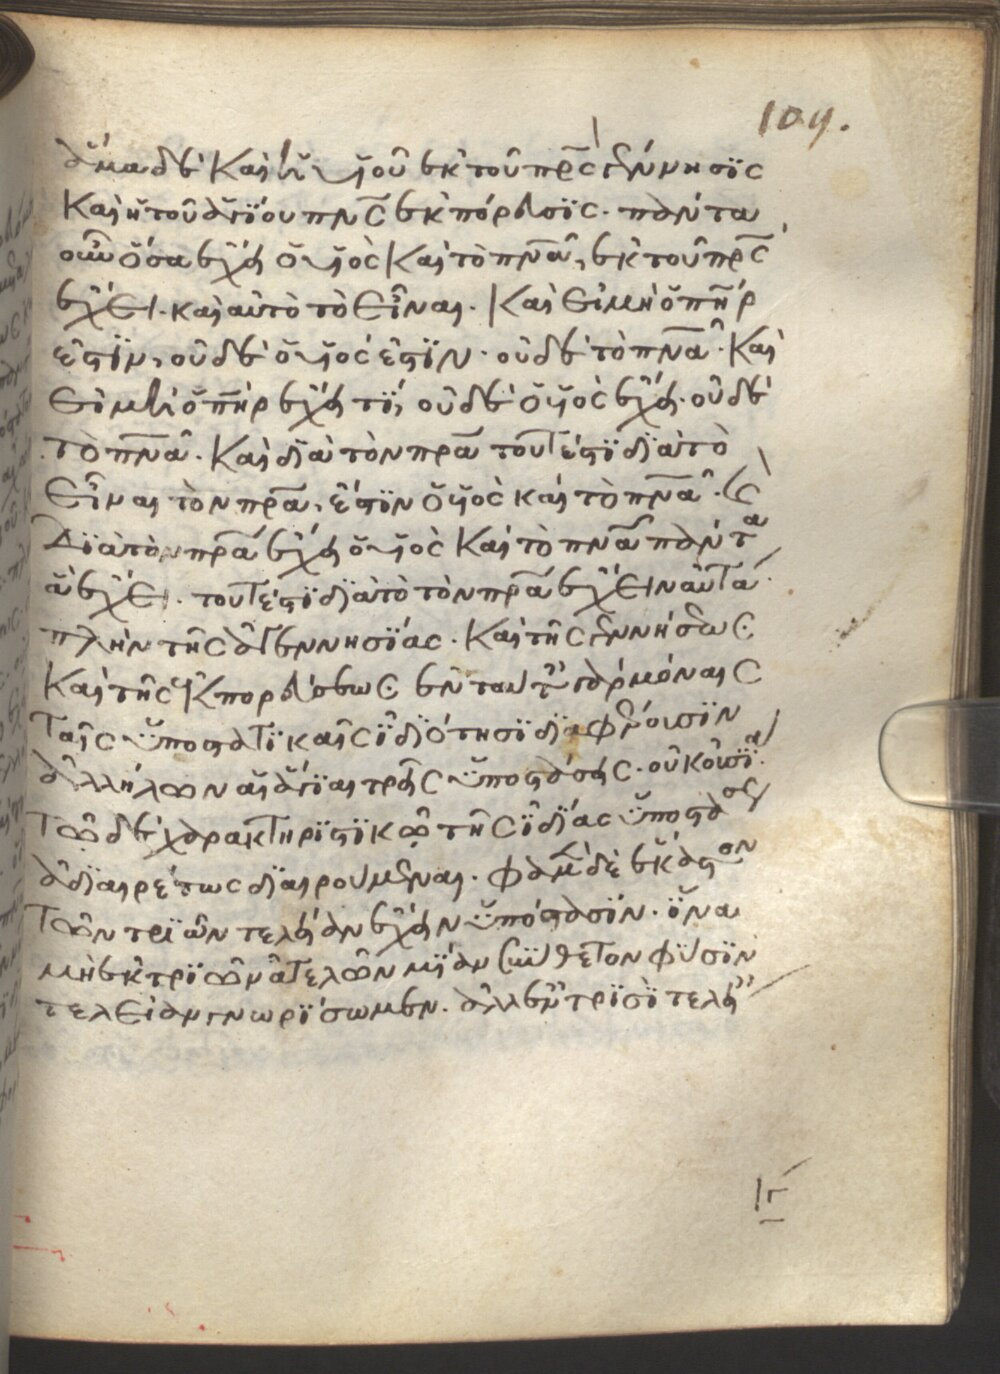 109.
ἅμα δὲ καὶ ἡ υἱοῦ ἐκ τοῦ πρς γέννησις
καὶ ἡ τοῦ ἁγίου πνς ἐκπόρευσις. πάντα
οὖν ὅσα ἔχει ὁ υἱὸς καὶ τὸ πνα, ἐκ τοῦ πρς
ἔχει. καὶ αὐτὸ τὸ εἶναι. καὶ εἰ μὴ ὁ πηρ
ἐστὶν, οὐδὲ ὁ υἱός ἐστὶν. οὐδὲ τὸ πνα. καὶ
εἰ μὴ ὁ πηρ ἔχει τὶ, οὐδὲ ὁ υἱὸς ἔχει. οὐδὲ
τὸ πνα. καὶ διὰ τὸν πρα τουτέστι διὰ τὸ
εἶναι τὸν πρα, ἔστιν ὁ υἱὸς καὶ τὸ πνα. κ
διὰ τὸν πρα ἔχει ὁ υἱὸς καὶ τὸ πνα πάντα
ἃ ἔχει. τουτέστι διὰ τὸ τὸν πρα ἔχειν αὐτά.
πλὴν τῆς ἀγεννησίας. καὶ τῆς γεννήσεως
καὶ τῆς ἐκπορεύσεως ἐν ταύτ γὰρ μόναις
ταῖς ὑποστατικαῖς ἰδιότησι διαφέρουσιν
ἀλλήλων αἱ ἅγιαι τρεῖς ὑποστάσεις. οὐκ οὐσία.
τῷ δὲ χαρακτηριστικῷ τῆς ἰδίας ὑποστάσ
ἀδιαιρέτως διαιρουμέναι. φαμ δὲ ἕκαστον
τῶν τριῶν τελείαν ἔχειν ὑπόστασιν. ἵνα
μὴ ἐκ τριῶν ἀτελῶν μίαν σύνθετον φύσιν
τελείαν γνωρίσωμεν. ἀλλ ἐν τρισὶ τελεί
ιγ